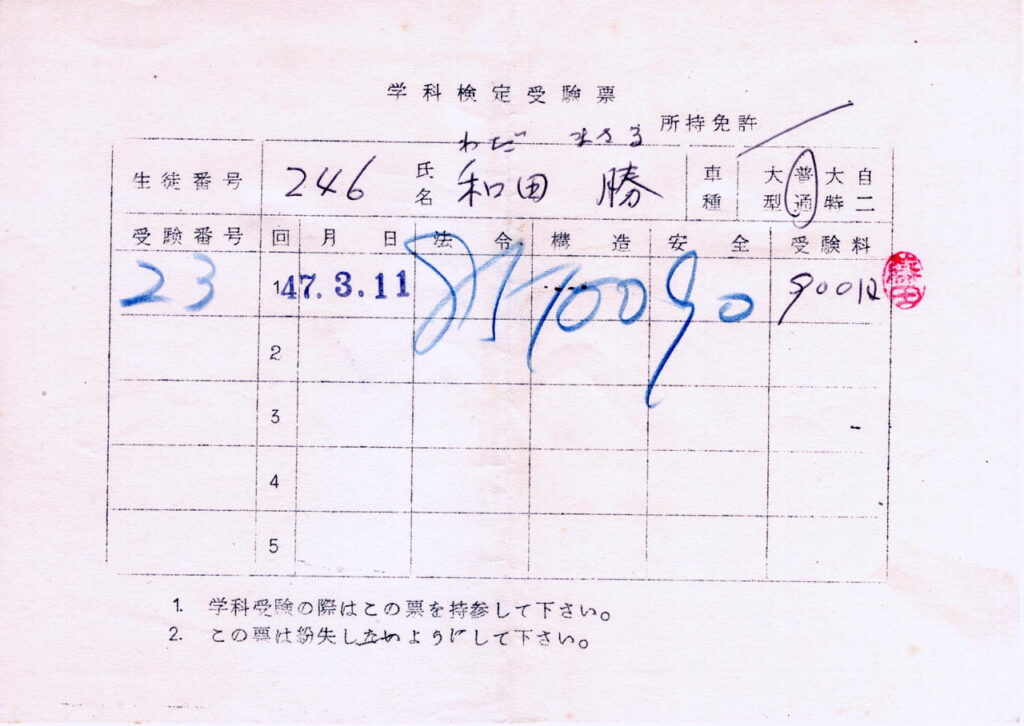 学科検定受験票
所持免許
わだ まさる
生徒番号 246 氏名 和田 勝 車種 大型 普通 大特 自二
受験番号 回 月 日 法 令 構 造 安 全 受験料
23 1 47.3.11 100 90 900円
2
3
4
5
1. 学科受験の際はこの票を持参して下さい。
2. この票は紛失しないようにして下さい。